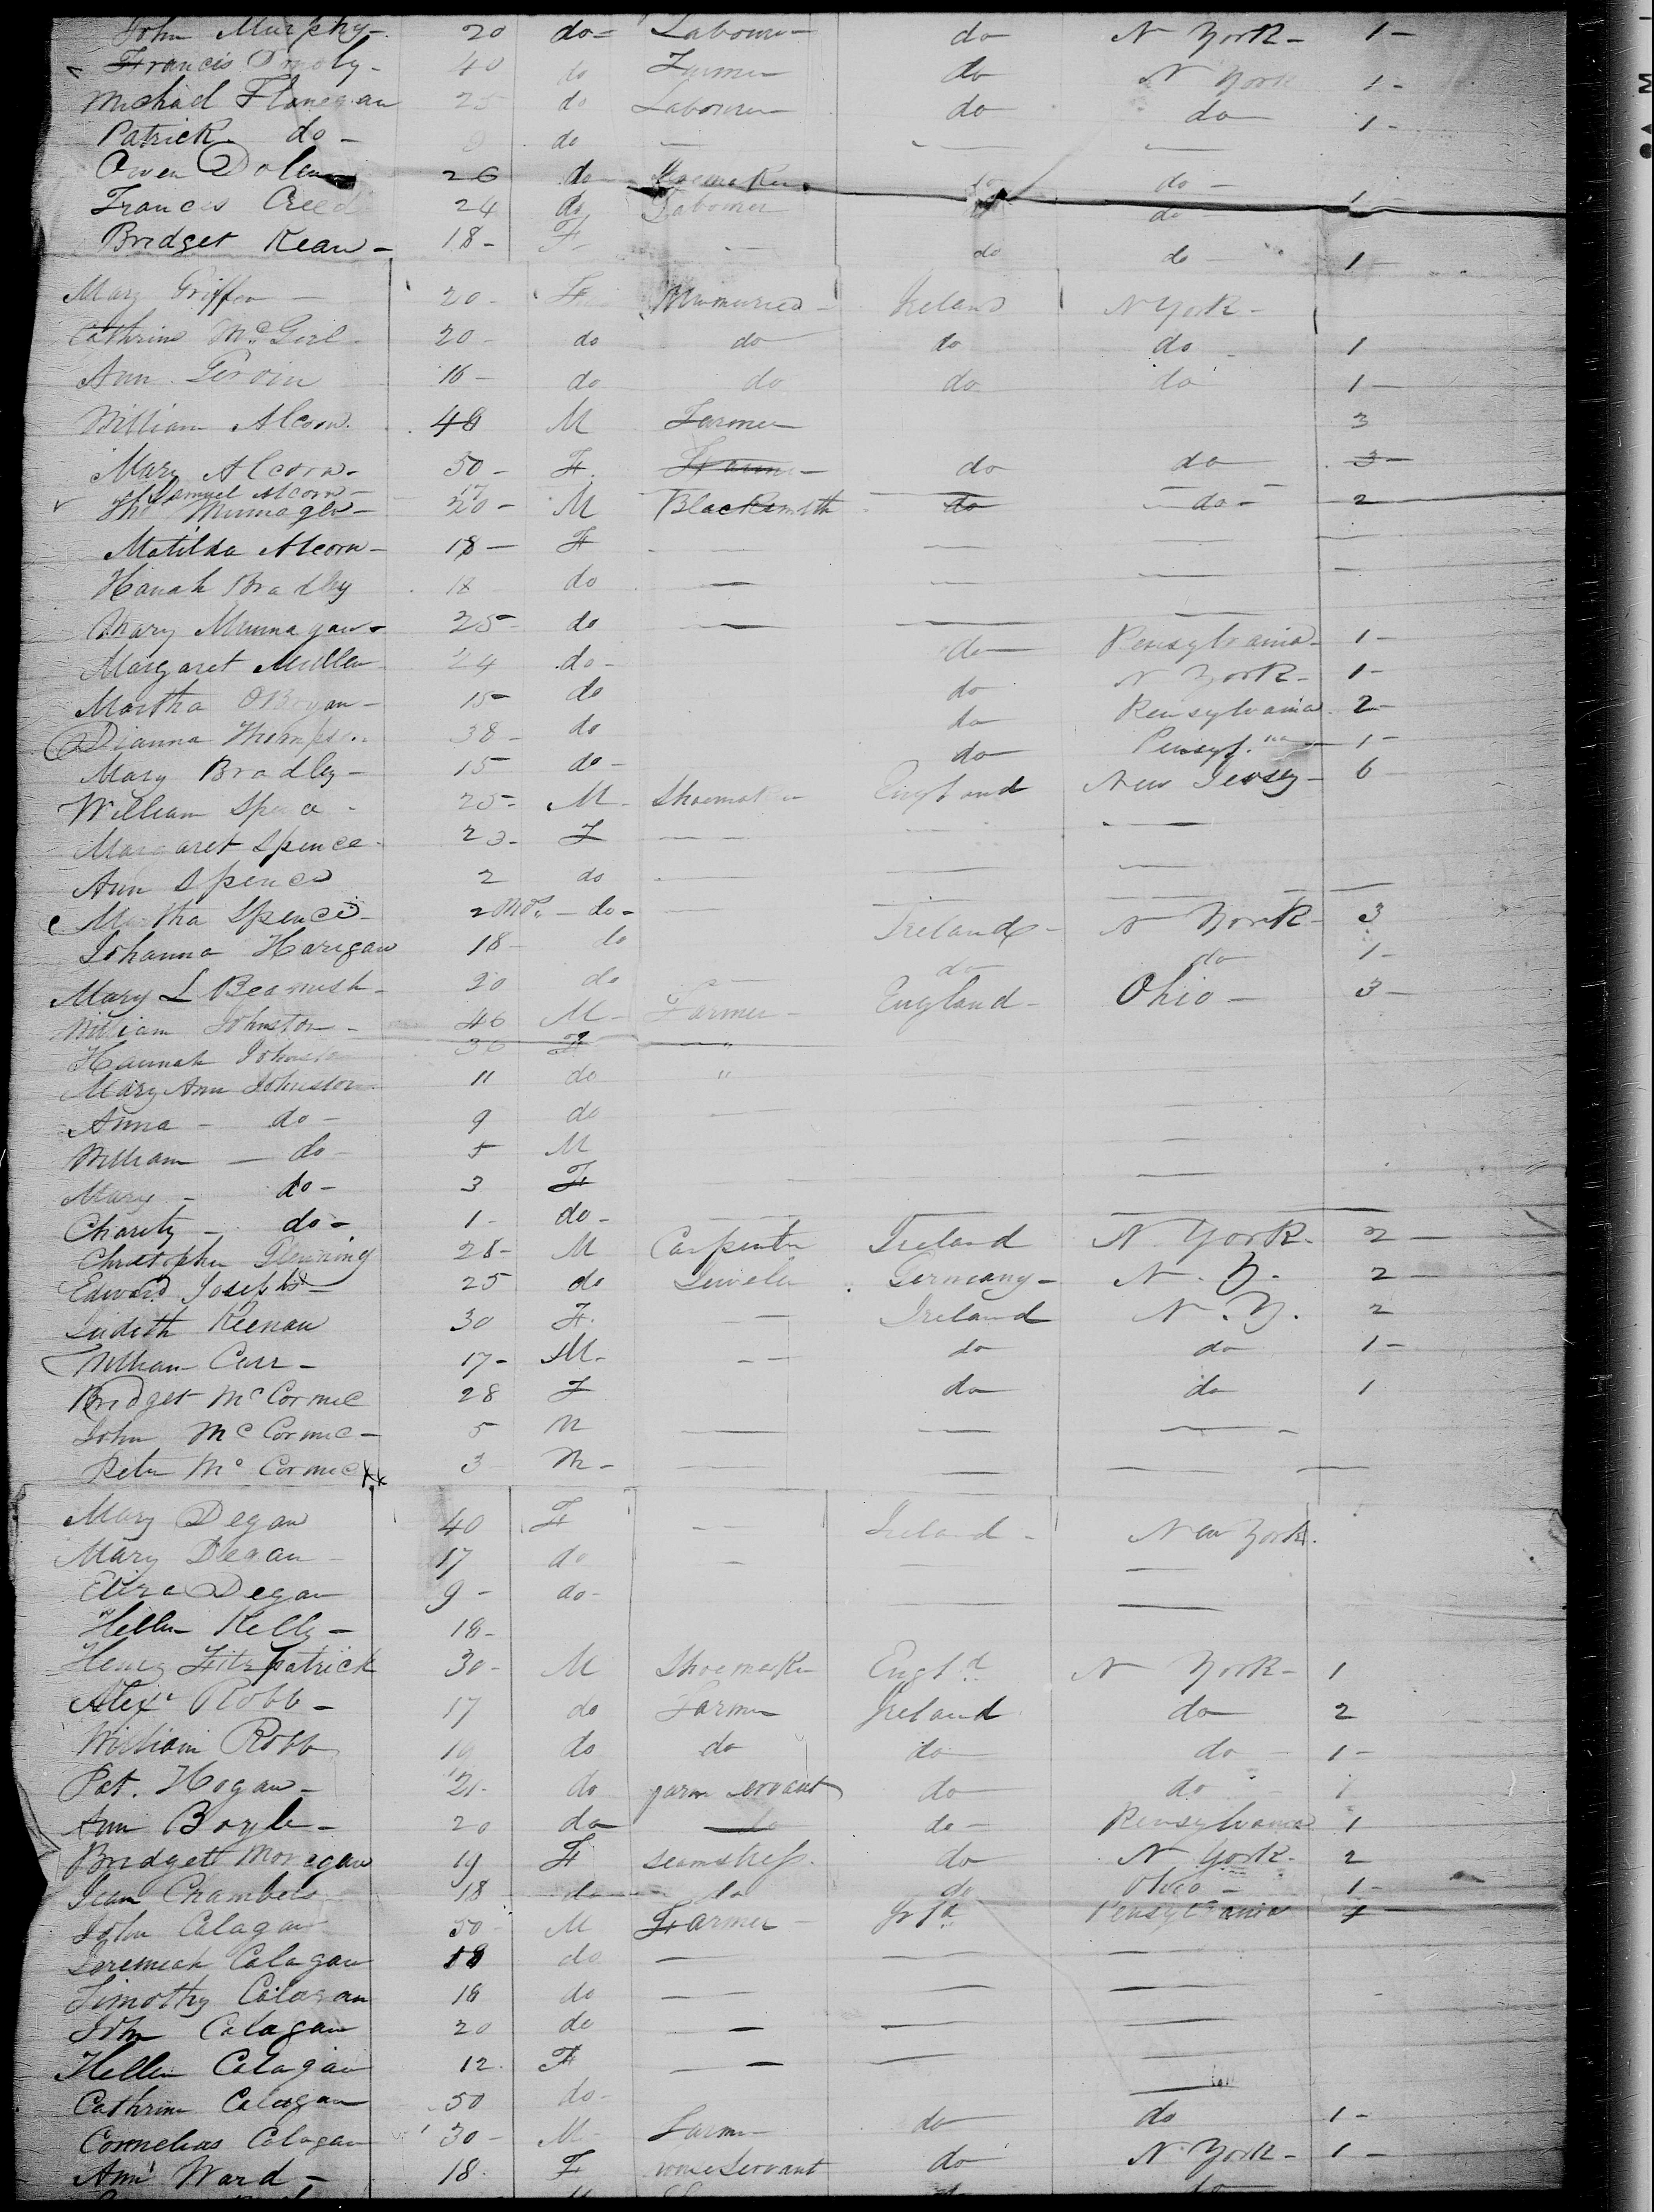 John Murphy - 20 do - Labourer - do N York - 1 -
Francis 40 do Farmer do N York 1 -
Michael Flanegan 25 do Labourer do do 1 -
Patrick do - do — — —
Owen Dolan 26 do Shoemaker do do -
Frances Creed 24 do Labourer do 1 -
Bridget Kean - 18 - F - — do do - 1 -
Mary Griffen — 20 - F Unmarried - Ireland N York -
Cathrine McGirl - 20 - do do do do - 1
Ann Gervin 16 - do do do do 1 -
William Alcorn 40 M Farmer 3
Mary Alcorn - 50 - F. do do 3 -
Samuel Alcorn - 17
Thos Munnagan - 20 - M Blacksmith do — do - 2
Matilda Alcorn - 18 — F - — — — —
Hanah Bradley 18 do — — — -
Mary Munnagan - 25 - do — — —
Margaret Mullen - 24 do - do Pensylvania - 1 -
Martha OBryan - 15 - do do N York - 1 -
Dianna Thompson 38 - do do Pensylvania 2 -
Mary Bradley - 15 do - do Pensyl.na - 1 -
William Spence - 25 - M - Shoemaker England New Jersey - 6
Margaret Spence - 23 - F — — —
Ann Spence 2 do — — —
Martha Spence - 2 Mos. - do - — — — —
Johanna Harigan 18 - do Ireland - N York - 3
Mary L Beamish - 20 do — do do 1 -
William Johnston - 46 M - Farmer - England - Ohio - 3 -
Hannah Johnston 36 F — "
Mary Ann Johnston 11 do "
Anna - do - 9 do — —
William — do - 5 M —
Mary - do - 3 F —
Charity - do - 1 - do - — — — —
Christopher Glenning 28 - M Carpenter Ireland N York - 2 -
Edward Josephs - 25 do Jeweler Germany - N. Y. 2 -
Judith Keenan 30 F. — Ireland N. Y. 2
William Carr - 17 - M - — — do do 1 -
Bridget McCormic 28 F do do 1
John McCormic - 5 M — — — -
Peter McCormic 3 M - — — — —
Mary Degan 40 F — Ireland - New York.
Mary Degan - 17 do — — —
Eliza Degan 9 - do - — —
Hellen Kelly - 18 -
Henry Fitzpatrick 30 - M Shoemaker Engld N York - 1
Alexr Robb - 17 do Farmer Ireland do 2
William Robb 19 do do do do - 1 -
Pat. Hogan - 21 - do farm servant do do 1
Ann Boyle - 20 do do do - Pensylvania 1
Bridgett Monegan 19 F seamstress do N York - 2
Jean Chambers 18 do do do Ohio - 1 -
John Calagan 50 - M Farmer - Pensylvania 7 -
Jeremiah Calagan 18 do — — —
Timothy Calagan 16 do — — — —
John Calagan 20 do — — —
Hellen Calagan 12 F — — — —
Cathrine Calagan 50 do - —
Cornelius Calagan 30 - M - Farmer do do 1 -
Ann Ward - 18 F servant do N. York - 1 -